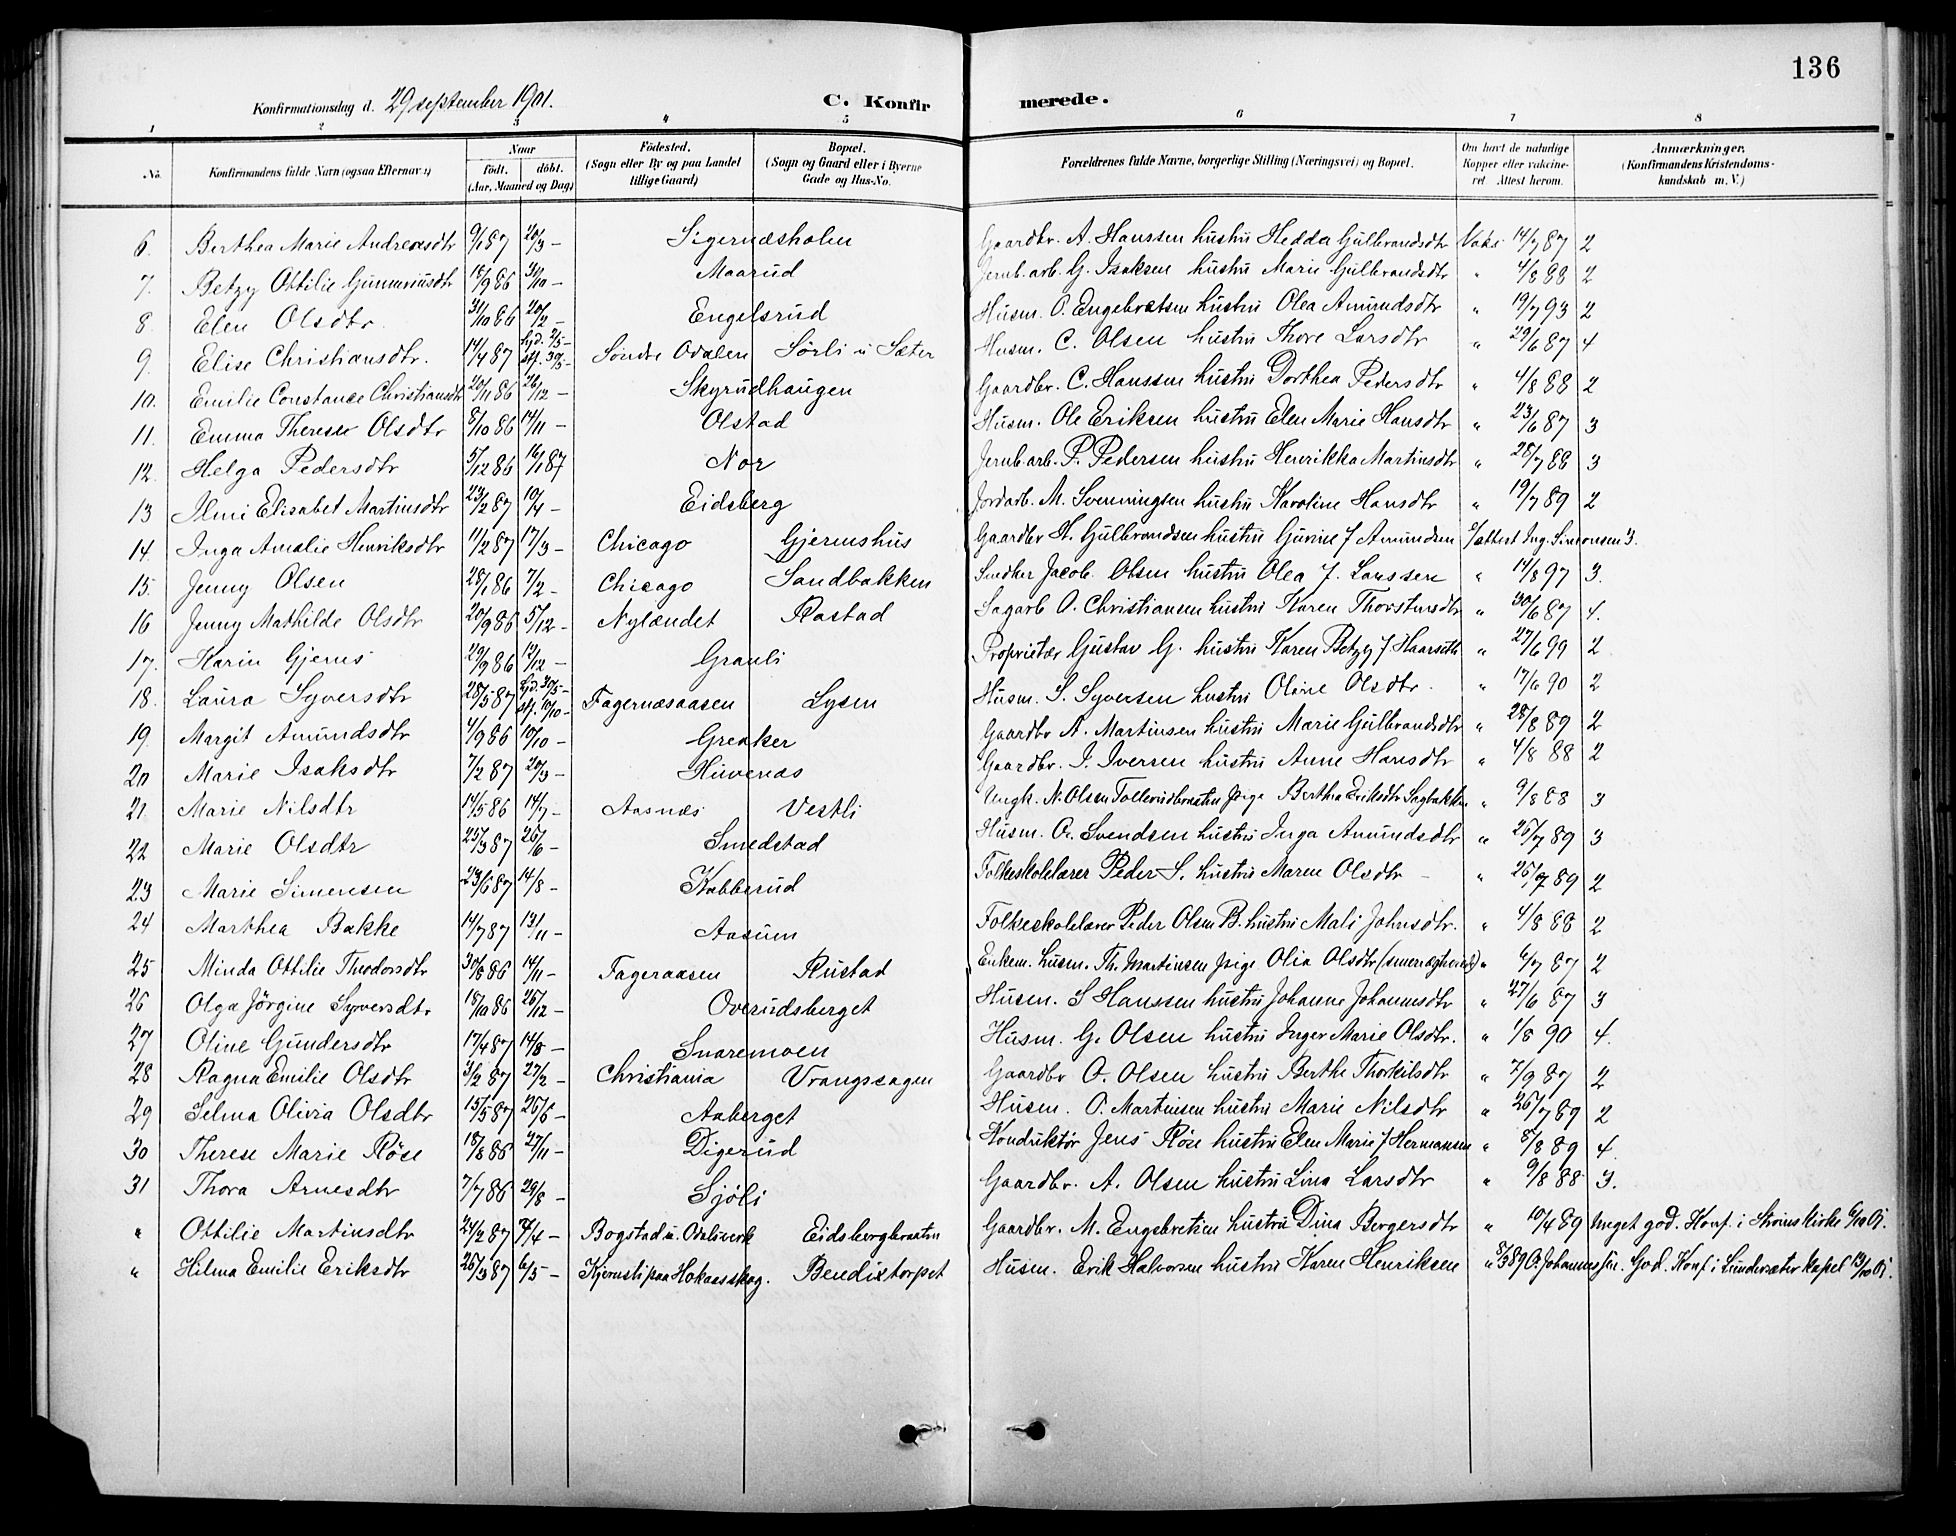 136
Konfirmationsdag d. 29 september 1901.
C. Konfirmerede.
1 2 3 4 5 6 7 8
No. Konfirmandens fulde Navn (ogsaa Efternavn) Naar født. døbt. (Aar, Maaned og Dag) Fødested. (Sogn eller By og paa Landet tillige Gaard) Bopæl. (Sogn og Gaard eller i Byerne Gade og Hus-No. Forældrenes fulde Navne, borgerlige Stilling (Næringsvei) og Bopæl. Om havt de naturlige Kopper eller vaccineret. Attest herom. Anmærkninger. (Konfirmandens Kristendomskundskab m. V.)
6. Berthea Marie Andreasdtr 9/1 87 20/3 – Sigernæsholen Gaardbr. A. Hanssen hustru Hedda Gulbrandsdtr Vaks 14/7 87 2
7. Betzy Ottilie Gunneriusdtr 18/9 86 31/10 – Maarud Jernb.arb. G. Isaksen hustru Marie Gulbrandsdtr " 4/8 88 2
8. Elen Olsdtr 31/10 86 20/2 – Engelsrud Husm. O. Engebretsen hustru Olea Amundsdtr " 19/7 93 2
9. Elise Christiansdtr. 14/4 87 hjd. 2/5 – stf. 30/5 – Søndre Odalen Sørli u Sæter Husm. C. Olsen hustru Thore Larsdtr " 29/6 87 4
10. Emilie Constance Christiansdtr 20/11 86 26/12 – Skyrudhaugen Gaardbr. C. Hanssen hustru Dorthea Pedersdtr " 4/8 88 2
11. Emma Therese Olsdtr 8/10 86 14/11 – Olstad Husm. Ole Eriksen hustru Elen Marie Hansdtr " 23/6 87 3
12. Helga Pedersdtr 5/12 86 16/1 87 Nor Jernb.arb. P. Pedersen hustru Henrikka Martinsdtr " 28/7 88 3
13 Ilmi Elisabet Martinsdtr 23/2 87 10/4 – Eidsberg Jordarb. M. Svenningsen hustru Karoline Hansdtr " 19/7 89 2
14. Inga Amalie Henriksdtr 11/2 87 17/3 – Chicago Gjermshus Gaardbr H. Gulbrandsen hustru Gurine f Amundsen Attest Ing. Simonsen 3.
15. Jenny Olsen 28/1 86 7/2 – Chicago Sandbakken Snedker Jacob Olsen hustru Olea f. Larssen " 14/8 97 3.
16 Jenny Mathilde Olsdtr 20/9 86 5/12 – Nylændet Rastad Sagarb O. Christiansen hustru Karen Thorstensdtr " 30/6 87 4.
17. Karin Gjems 29/9 86 12/12 – Granli Proprietær Gustav G. hustru Karen Betzy f Haarseth " 27/6 99 2
18. Laura Syversdtr 28/5 87 hjd. 30/5 – stf. 10/10 – Fagernæsaasen Lysen Husm. S. Syversen hustru Oline Olsdtr. " 17/6 90 2
19. Margit Amundsdtr 4/9 86 10/10 – Greaker Gaardbr A. Martinsen hustru Marie Gulbrandsdtr " 28/8 89 2
20 Marie Isaksdtr 7/2 87 20/3 – Huvenæs Gaardbr. I. Iversen hustru Anne Hansdtr " 4/8 88 2
21. Marie Nilsdtr 14/5 86 14/7 – Aasnæs Vestli Ungk. N. Olsen Tollerudbraaten Pige Berthea Eriksdtr Sagbakken " 9/8 88 3
22 Marie Olsdtr 25/3 87 26/6 – Smedstad Husm. O. Svendsen hustru Inga Amundsdtr " 25/7 89 3
23 Marie Simensen 23/6 87 14/8 – Kabberud Folkeskolelærer Peder S. hustru Maren Olsdtr – " 25/7 89 2
24 Marthea Bakke 14/7 87 13/11 – Aasum Folkeskolelærer Peder Olsen B. hustru Mali Johnsdtr. " 4/8 88 2
25 Minda Ottilie Theodorsdtr 30/8 86 14/11 – Fageraasen Rustad Enkem. husm. Th. Martinsen pige Olia Olsdtr " 6/7 87 2
26 Olga Jørgine Syversdtr 18/10 86 26/12 – Overudsberget Husm. S Hanssen hustru Johanne Johannesdtr " 27/6 87 3
27 Oline Gundersdtr 17/4 87 14/8 – Snaremoen Husm. G. Olsen hustru Inger Marie Olsdtr. " 1/8 90 4.
28 Ragna Emilie Olsdtr 3/2 87 27/2 – Christiania Vrangssagen Gaardbr O. Olsen hustru Berthe Thorkilsdtr " 7/9 87 2
29 Selma Olivia Olsdtr 15/5 87 26/6 – Aaberget Husm. O. Martinsen hustru Marie Nilsdtr " 26/7 89 2
30 Therese Marie Røse 18/8 86 27/11 – Digerud Konduktør Jens Røse hustru Elen Marie f Hermansen " 8/8 89 4.
31 Thora Arnesdtr 7/7 86 29/8 – Sjøli Gaardbr. A. Olsen hustru Lina Larsdtr " 9/8 88 3.
" Ottilie Martinsdtr 24/2 87 7/4 – Bogstad u. Odalsverk Eidsbergbraaten Gaardbr. M. Engebretsen hustru Dina Bergersdtr " 10/4 89 Meget god. Konf. i Strøms kirke 6/10 01.
" Hilma Emilie Eriksdtr 26/3 87 6/5 – Kjernsli paa Hokaasskog. Bendixtorpet Husm. Erik Halvorsen hustru Karen Henriksen " 8/3 89 O. Johannessen. God. Konf. i Lundersæter kapel 13/10 01.